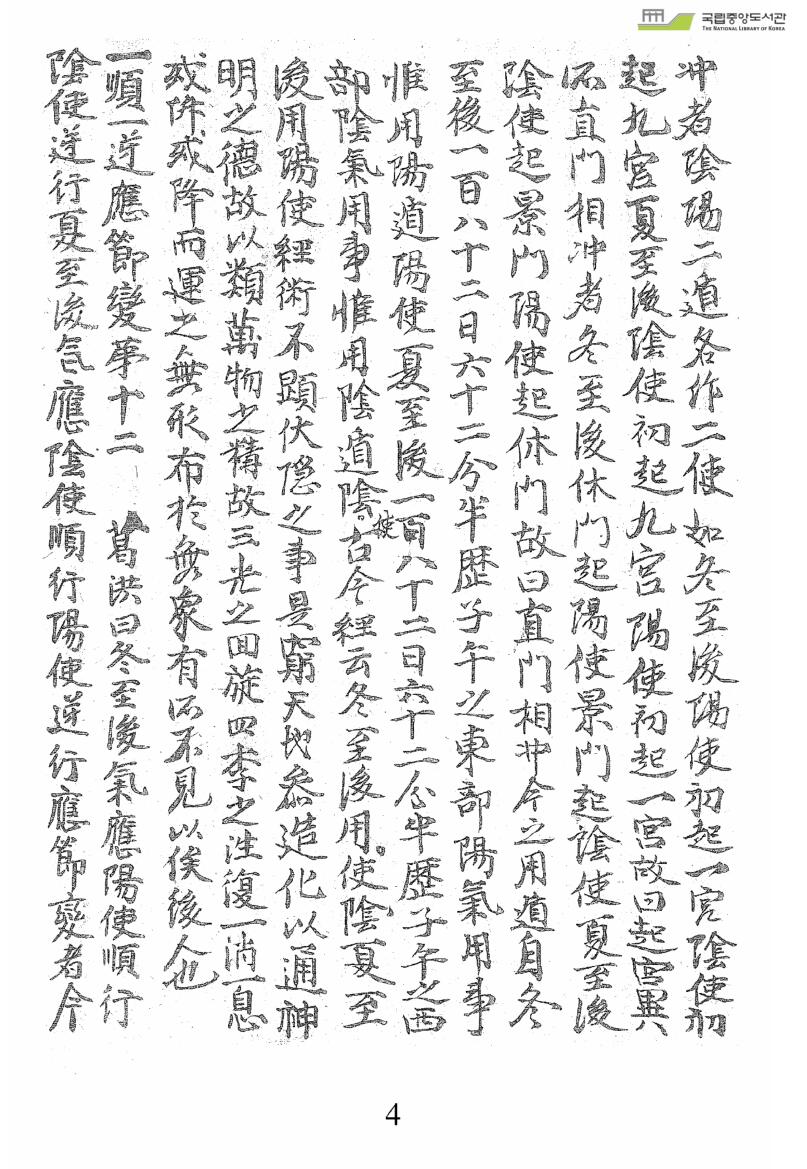 국립중앙도서관
THE NATIONAL LIBRARY OF KOREA
冲者陰陽二遁各作二使如冬至後陽使初起一宮陰使初
起九宮夏至後陰使初起九宮陽使初起一宮故曰起宮異
所直門相冲者冬至後休門起陽使景門起陰使夏至後
陰使起景門陽使起休門故曰直門相冲今之用遁自冬
至後一百八十二日六十二分半歷子午之東部陽氣用事
惟用陽遁陽使夏至後一百八十二日六十二分半歷子午之西
部陰氣用事惟用陰遁陰使古今經云冬至後用使陰夏至
後用陽使經術不顕伏隠之事是窮天地叅造化以通神
明之德故以類萬物之精故三光之回旋四季之往復一消一息
或阩或降而運之無形布於無象有所不見以俟後人也
一順一逆應節變第十二 葛洪曰冬至後氣應陽使順行
陰使逆行夏至後氣應陰使順行陽使逆行應節變者今
4